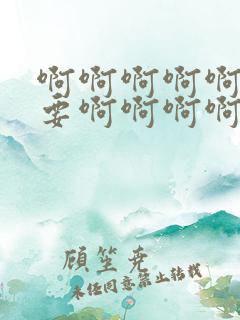 啊啊啊啊啊
要啊啊啊啊
顾笙尧
未经同意禁止转载